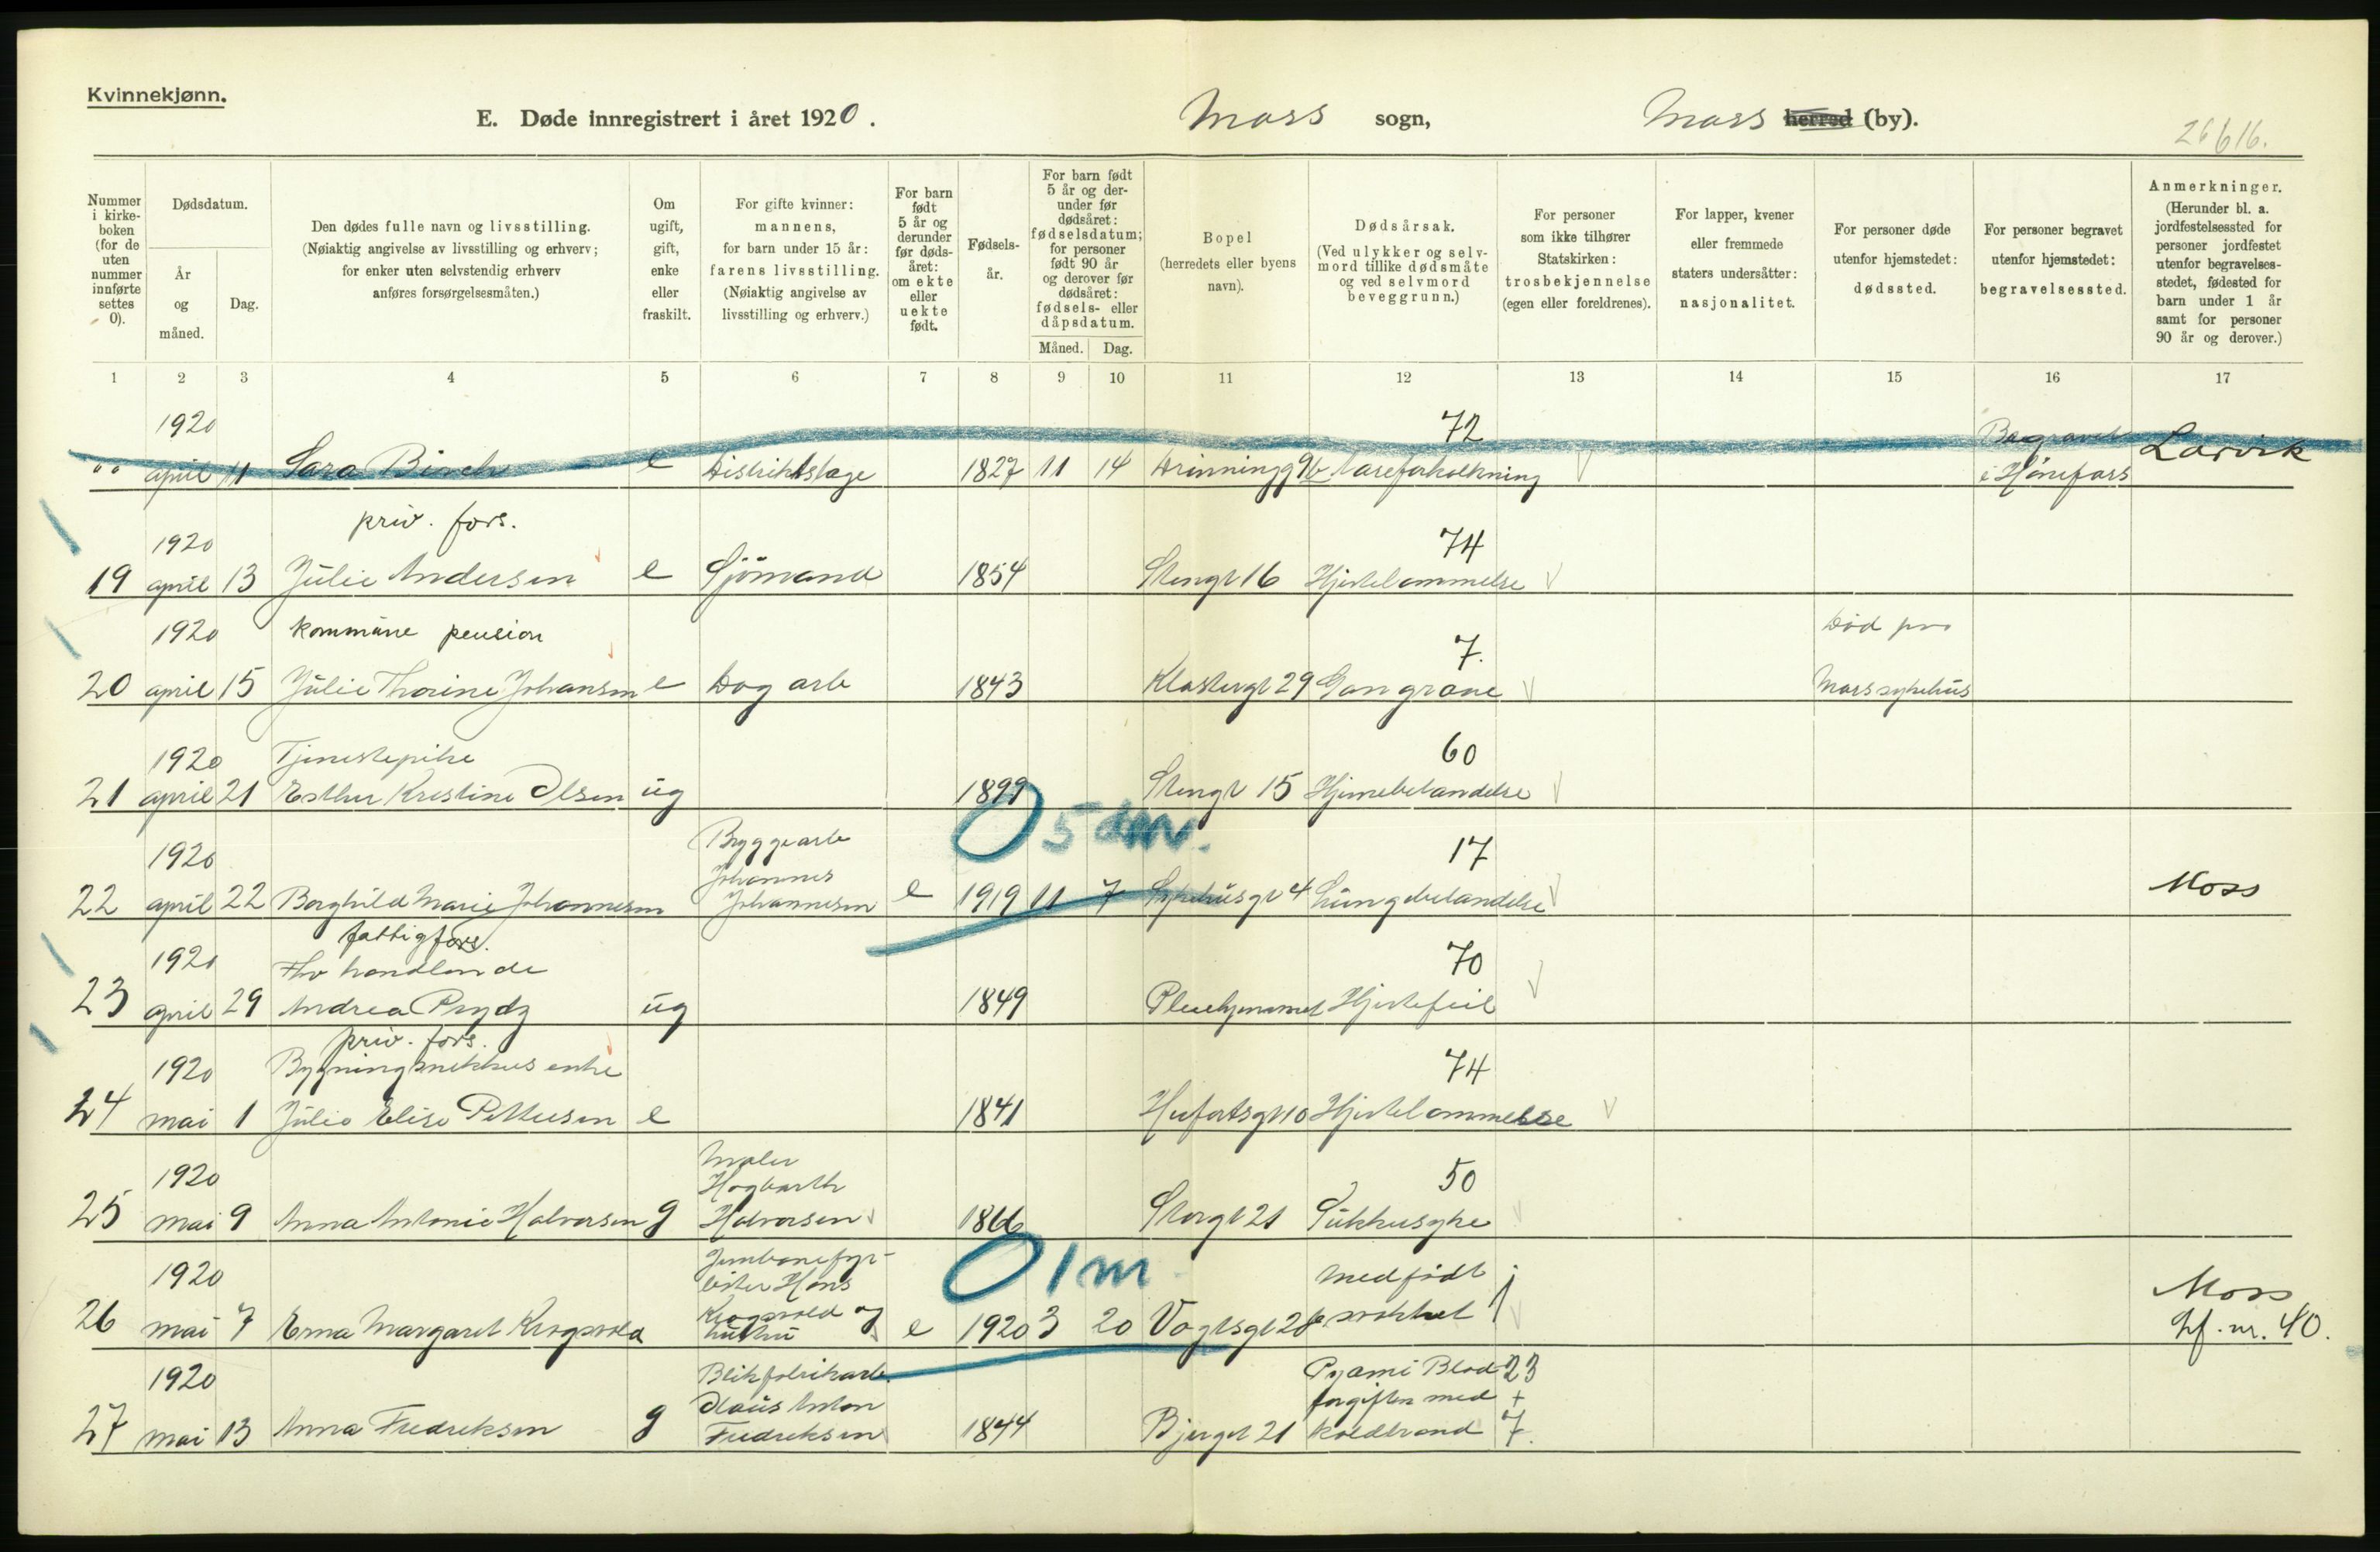 Kvinnekjønn.
E. Døde innregistrert i året 1920. Moss sogn, Moss herred (by).
26616.
Nummer i kirke- boken (for de uten nummer innførte settes 0).
Dødsdatum.
År og måned.
Dag.
Den dødes fulle navn og livsstilling.
(Nøiaktig angivelse av livsstilling og erhverv;
for enker uten selvstendig erhverv
anføres forsørgelsesmåten.)
Om ugift, gift, enke eller fraskilt.
For gifte kvinner:
mannens,
for barn under 15 år:
farens livsstilling.
(Nøiaktig angivelse av
livsstilling og erhverv.)
For barn født 5 år og derunder før døds- året: om ekte eller uekte født.
Fødsels- år.
For barn født 5 år og der- under før dødsåret: fødselsdatum; for personer født 90 år og derover før dødsåret: fødsels- eller dåpsdatum.
Måned. Dag.
Bopel
(herredets eller byens
navn).
Dødsårsak.
(Ved ulykker og selv-
mord tillike dødsmåte
og ved selvmord
beveggrunn.)
For personer
som ikke tilhører
Statskirken:
trosbekjennelse
(egen eller foreldrenes).
For lapper, kvener
eller fremmede
staters undersåtter:
nasjonalitet.
For personer døde
utenfor hjemstedet:
dødssted.
For personer begravet
utenfor hjemstedet:
begravelsessted.
Anmerkninger.
(Herunder bl. a.
jordfestelsessted for
personer jordfestet
utenfor begravelses-
stedet, fødested for
barn under 1 år
samt for personer
90 år og derover.)
1 2 3 4 5 6 7 8 9 10 11 12 13 14 15 16 17
1920 72 Begravet
"" april 11 Sara Birch e Distriktslæge 1827 11 14 Areforkalkning i Hønefoss Larvik
priv. fors.
1920 74
19 april 13 Julie Andersen e Sjömand 1854 Stengt 16 Hjertelammelse
1920 kommune pension 7. Död paa
20 april 15 Julie Thorine Johansen e Dag arb 1843 Klostergt 29 Gangræne Moss sykehus
1920 Tjenestepike 60
21 april 21 Esther Kristine Olsen ug 1899 Stengt 15 Hjernebetændelse
0 5 dm.
1920 Byggearb 17
Johannes
22 april 22 Borghild Marie Johannesen Johannesen e 1919 11 7 Sykehusgt 4 Lungebetændelse Moss
fattigfors.
1920 Fhv handlende 70
23 april 29 Andrea Prydz ug 1849 Pleiehjemmet Hjertefeil
priv. fors.
1920 Bygningsnekkers enke 74
24 mai 1 Julie Elise Pettersen e 1841 Hjertelammelse
Maler
1920 Hogbarth 50
25 mai 9 Anna Antonie Halvorsen g Halvorsen 1866 Storgt 21 Sukkersyke
0 1 m
Jernbanefyr-
1920 böter Hans Medfødt
Krogsvold og
26 mai 7 Erna Margaret Krogsvold hustru e 1920 3 20 Vogtsgt svakhet 1 Moss
Lf. nr. 40.
Blikfabrikarb. Pyæmi Blod 23
1920 Olaus Anton forgiften med +
27 mai 13 Anna Fredriksen g Fredriksen 1844 Bjerget 21 koldbrand 7.